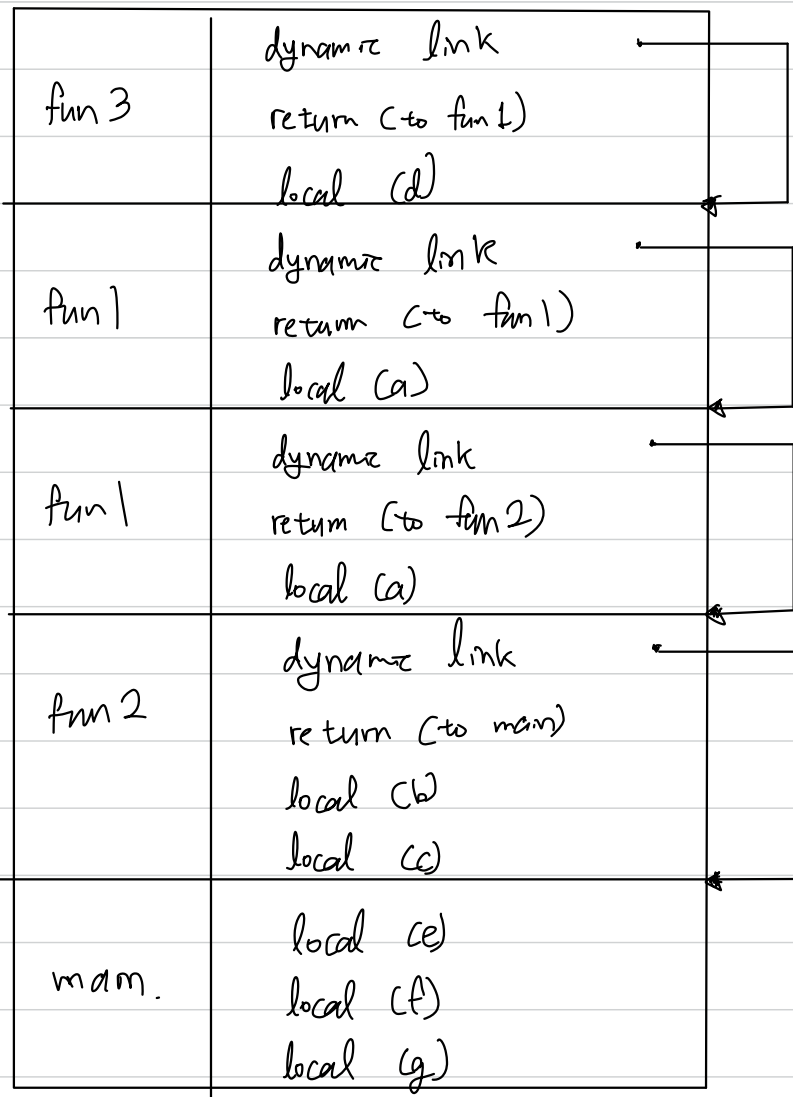 fun 3
dynamic link
return (to fun 1)
local (d)
fun 1
dynamic link
return (to fun 1)
local (a)
fun 1
dynamic link
return (to fun 2)
local (a)
fun 2
dynamic link
return (to main)
local (b)
local (c)
main.
local (e)
local (f)
local (g)